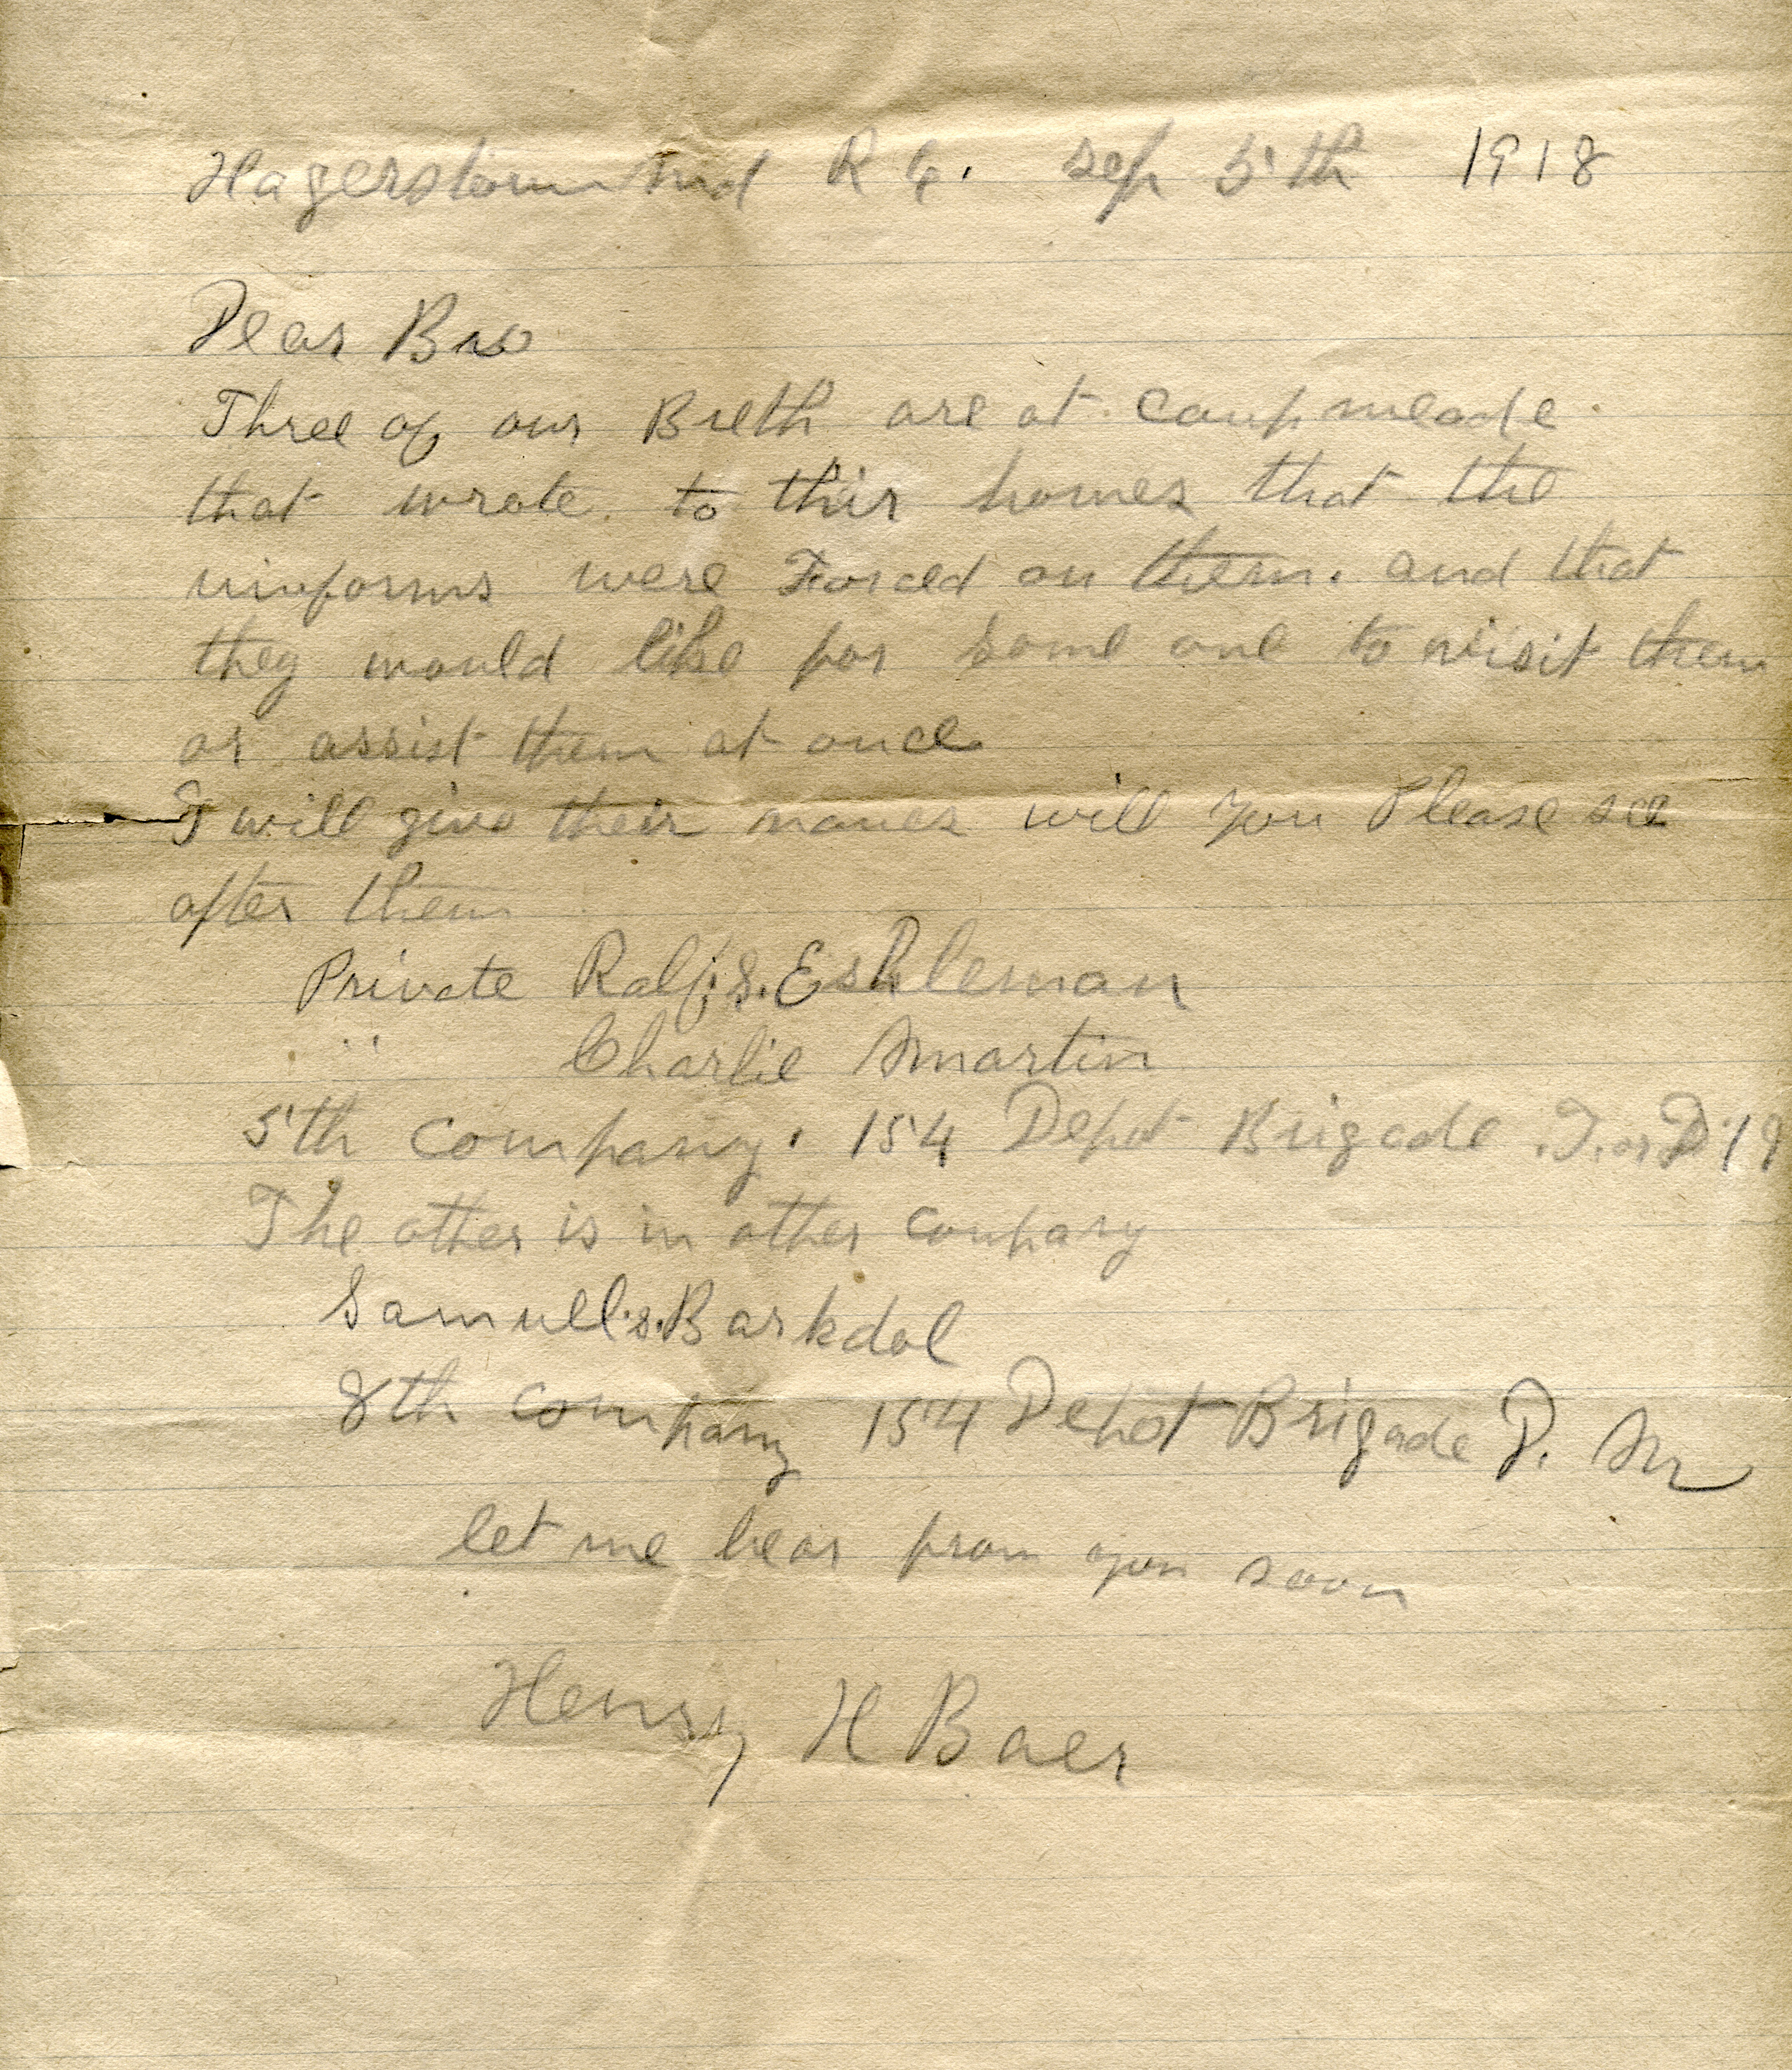 Hagerstown Md R 6. Sep 5th 1918
Dear Bro
Three of our Breth are at camp meade
that wrote to thir homes that the
uniforms were Forced on them. and that
they would like for some one to visit them
or assist them at once
I will give their names will you Please see
after them
Private Ralf. S. Eshleman
" Charlie Martin
5th company. 154 Depot Brigade
The other is in other company
Samuel. S. Barkdol
8th company 154 Depot Brigade
let me hear from you soon
Henry H Baer